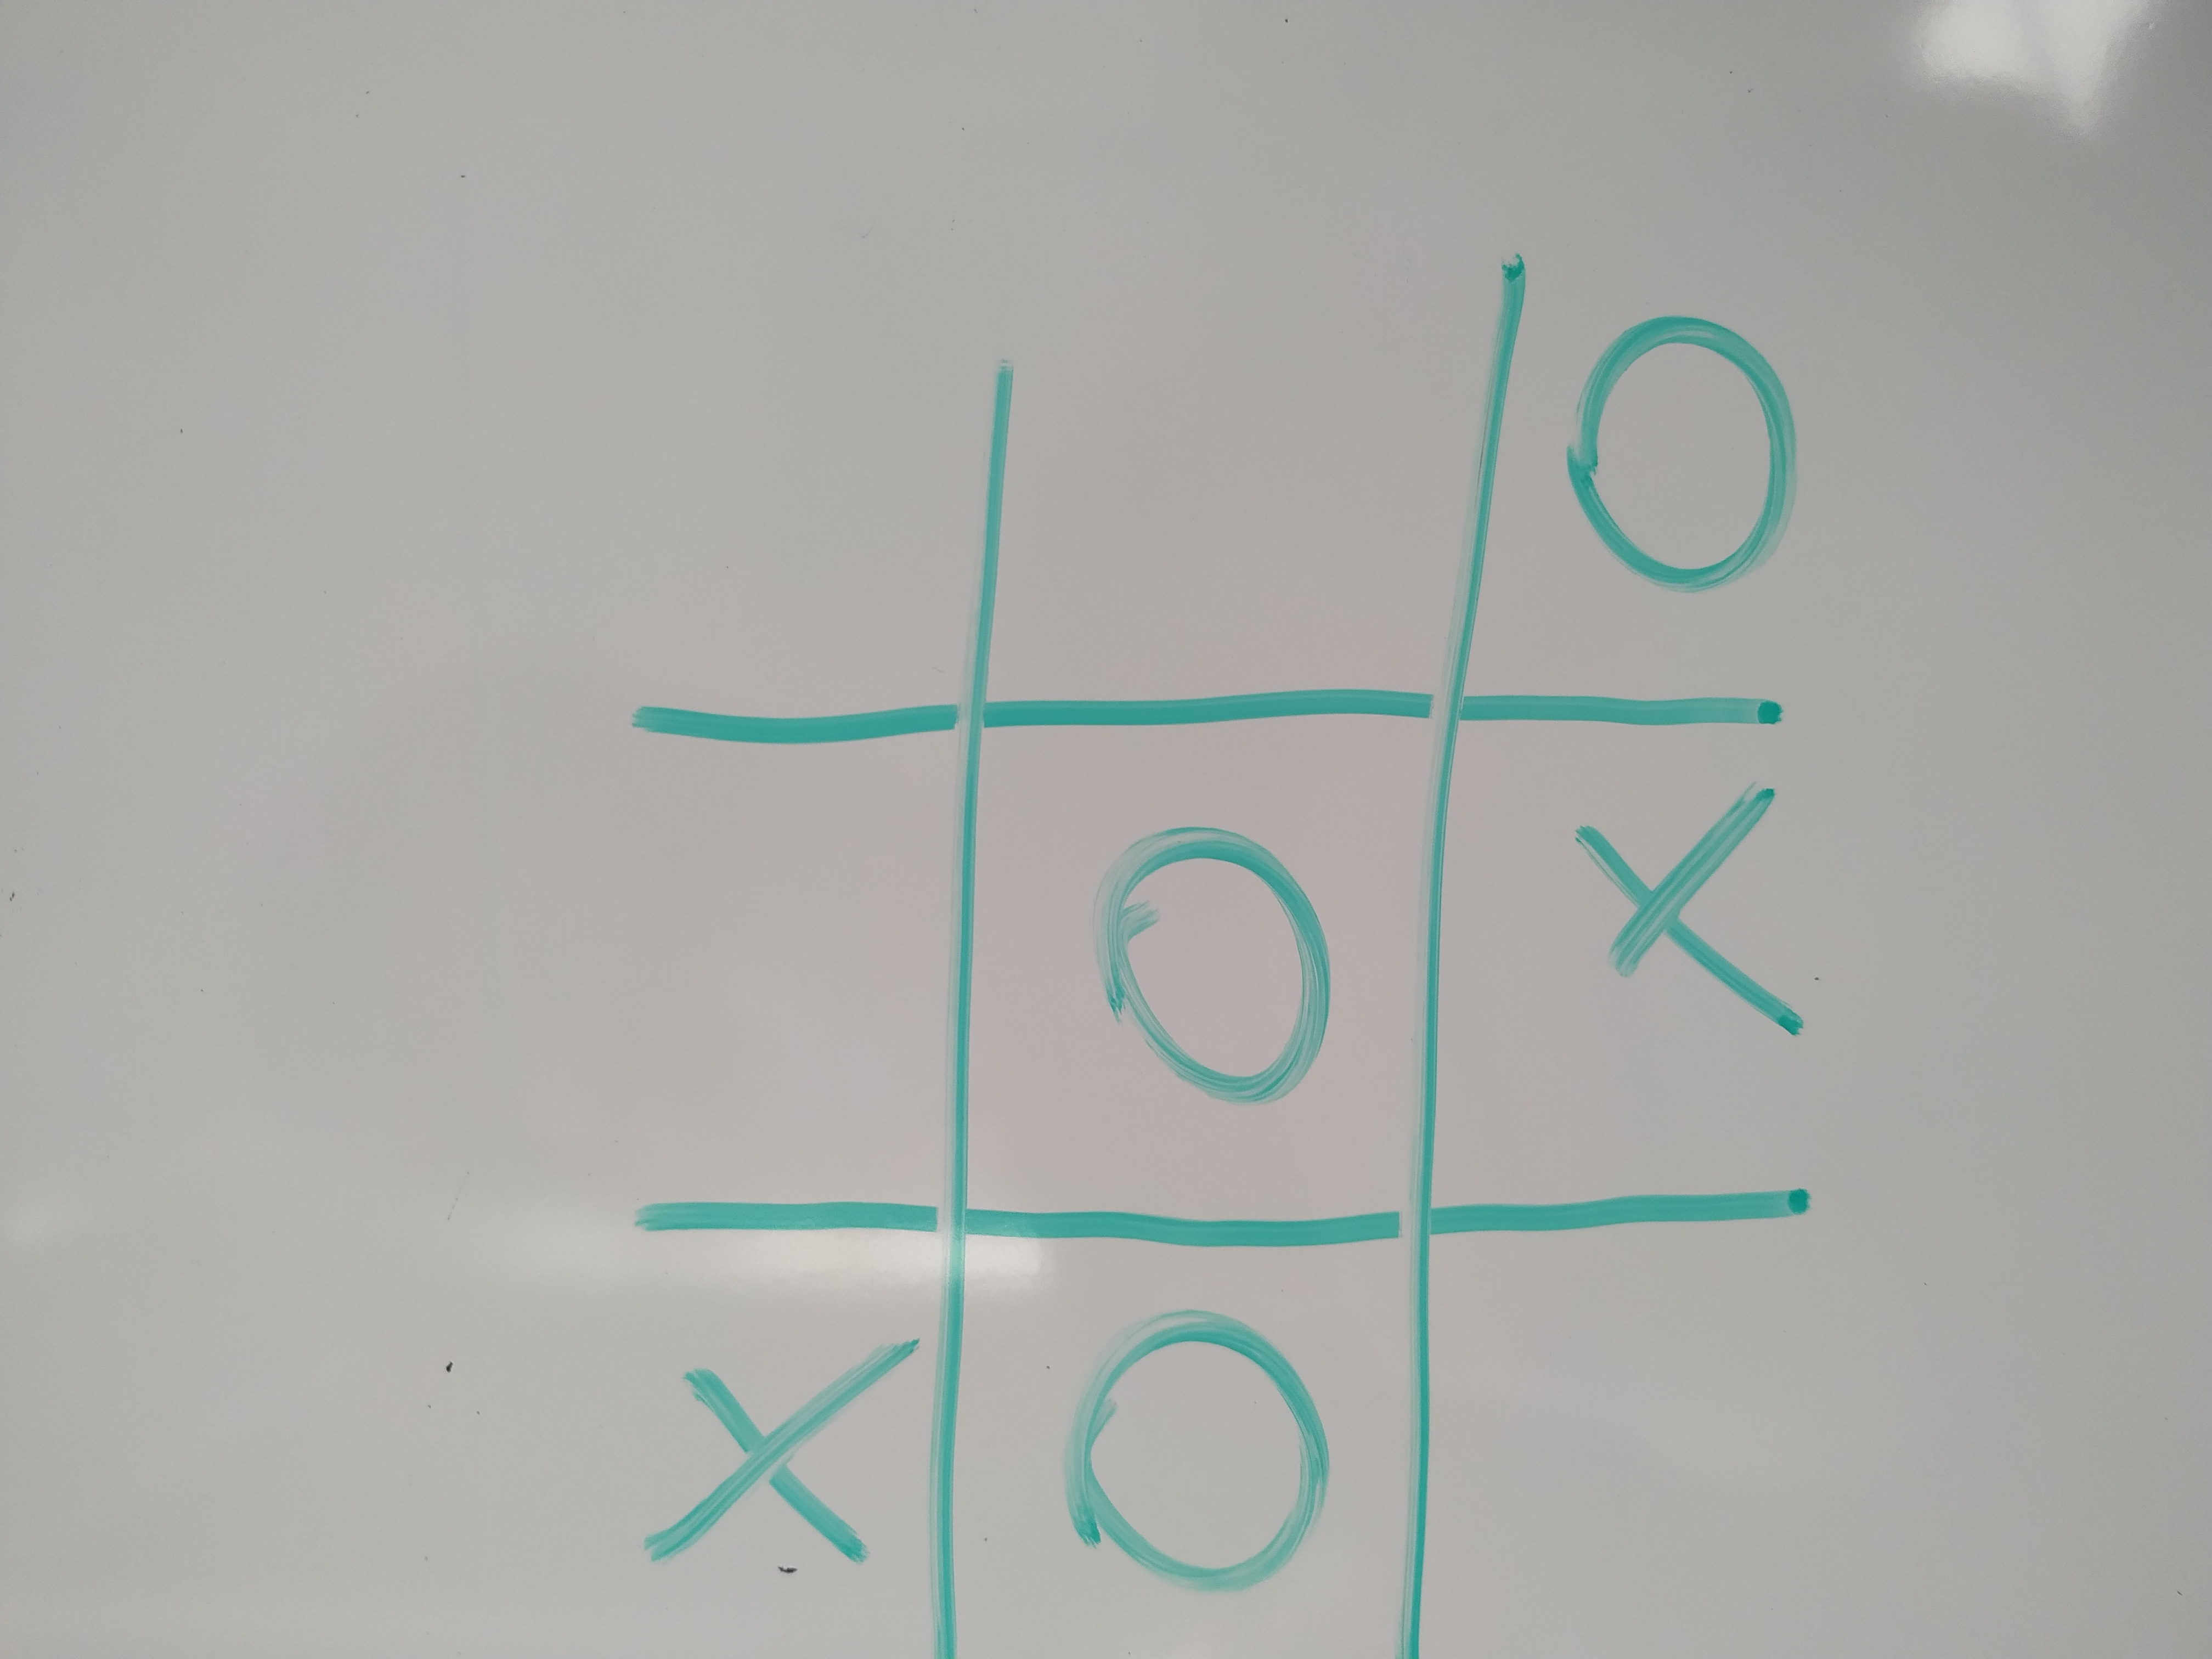 X
O O
X O